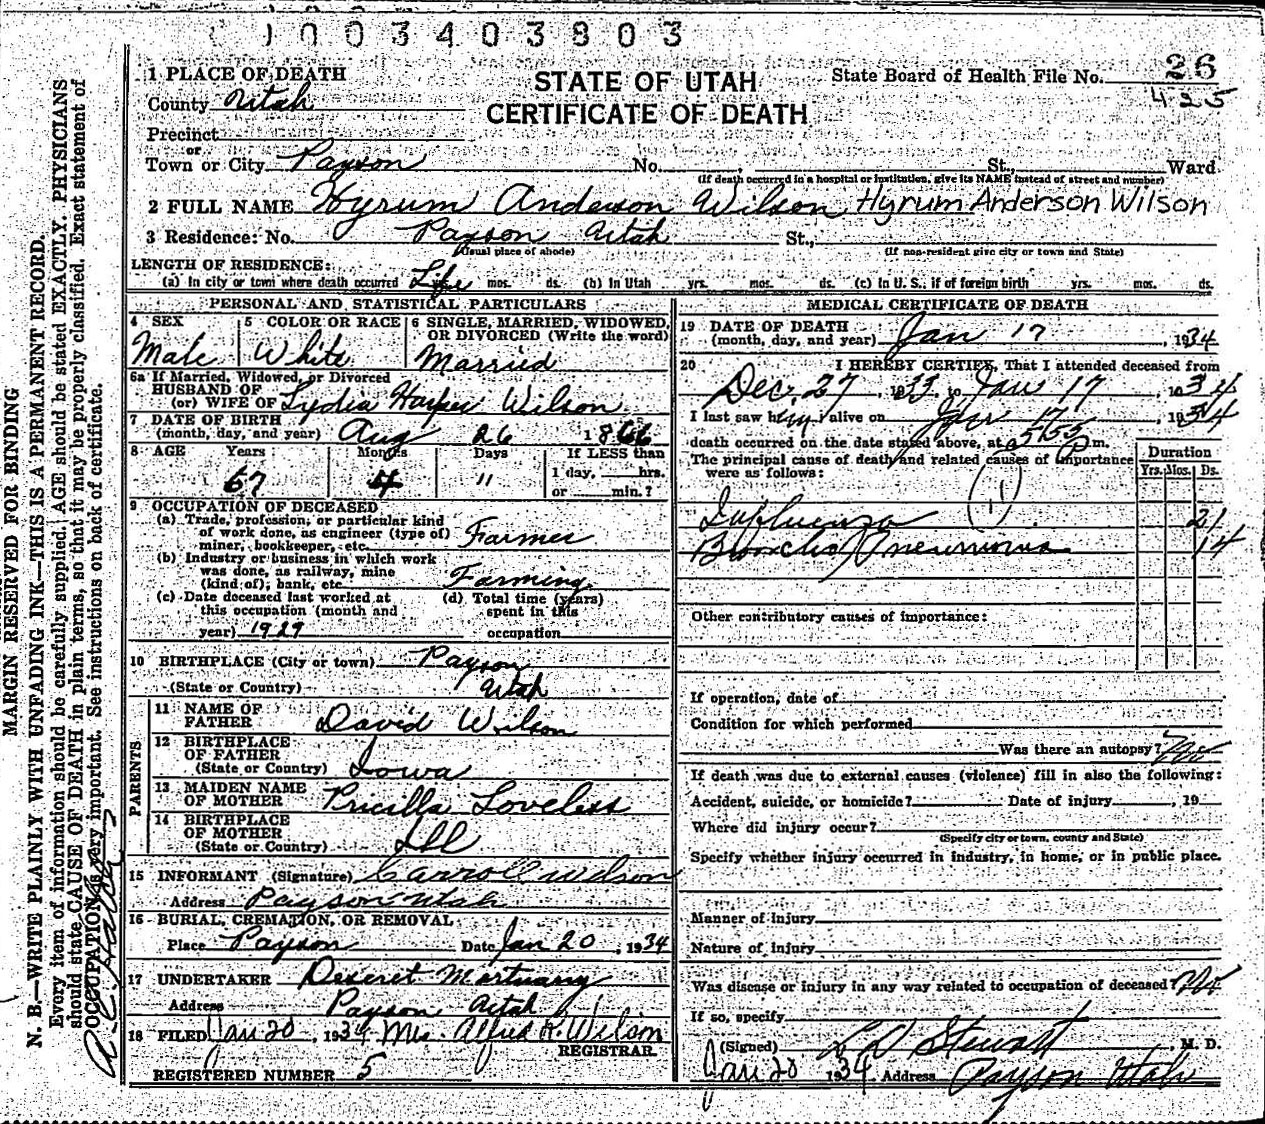 1003403803
26
425
1 PLACE OF DEATH
STATE OF UTAH
State Board of Health File No.
County Utah
CERTIFICATE OF DEATH
Precinct
or
Town or City Payson No. St., Ward
(If death occurred in a hospital or institution, give its NAME instead of street and number)
2 FULL NAME Hyrum Anderson Wilson Hyrum Anderson Wilson
3 Residence: No. Payson Utah St.,
(Usual place of abode) (If non-resident give city or town and State)
LENGTH OF RESIDENCE:
(a) In city or town where death occurred Life mos. ds. (b) In Utah yrs. mos. ds. (c) In U. S., if of foreign birth yrs. mos. ds.
PERSONAL AND STATISTICAL PARTICULARS
4 SEX
Male
5 COLOR OR RACE
White
6 SINGLE, MARRIED, WIDOWED,
OR DIVORCED (Write the word)
Married
6a If Married, Widowed, or Divorced
HUSBAND OF
(or) WIFE OF Lydia Harper Wilson
7 DATE OF BIRTH
(month, day, and year) Aug 26 1866
8 AGE Years Months Days If LESS than
67 4 " 1 day, hrs.
or min.?
9 OCCUPATION OF DECEASED
(a) Trade, profession, or particular kind
of work done, as engineer (type of)
miner, bookkeeper, etc. Farmer
(b) Industry or business in which work
was done, as railway, mine
(kind of), bank, etc Farming
(c) Date deceased last worked at
this occupation (month and
year) 1929
(d) Total time (years)
spent in this
occupation
10 BIRTHPLACE (City or town) Payson
(State or Country) Utah
PARENTS
11 NAME OF
FATHER David Wilson
12 BIRTHPLACE
OF FATHER
(State or Country) Iowa
13 MAIDEN NAME
OF MOTHER Pricilla Loveless
14 BIRTHPLACE
OF MOTHER
(State or Country) Ill
15 INFORMANT (Signature) Carroll Wilson
Address Payson Utah
16 BURIAL, CREMATION, OR REMOVAL
Place Payson Date Jan 20, 1934
17 UNDERTAKER Deseret Mortuary
Address Payson Utah
18 FILED Jan 20, 1934 Mrs. Alfred R. Wilson
REGISTRAR
REGISTERED NUMBER 5
MEDICAL CERTIFICATE OF DEATH
19 DATE OF DEATH
(month, day, and year) Jan 17, 1934
20 I HEREBY CERTIFY, That I attended deceased from
Dec. 27, 1933, to Jan 17, 1934
I last saw him alive on Jan 17, 1934
death occurred on the date stated above, at 5:55 P m.
The principal cause of death and related causes of importance
were as follows:
Duration
Yrs. Mos. Ds.
Influenza 21
Broncho Pneumonia 14
Other contributory causes of importance:
If operation, date of
Condition for which performed
Was there an autopsy? No
If death was due to external causes (violence) fill in also the following:
Accident, suicide, or homicide? Date of injury , 19
Where did injury occur?
(Specify city or town, county and State)
Specify whether injury occurred in industry, in home, or in public place.
Manner of Injury
Nature of Injury
Was disease or injury in any way related to occupation of deceased? No
If so, specify
(Signed) L D Stewart, M. D.
Jan 20 1934 Address Payson Utah
MARGIN RESERVED FOR BINDING
N. B.—WRITE PLAINLY WITH UNFADING INK—THIS IS A PERMANENT RECORD.
Every item of information should be carefully supplied. AGE should be stated EXACTLY. PHYSICIANS
should state CAUSE OF DEATH in plain terms, so that it may be properly classified. Exact statement of
OCCUPATION is very important. See instructions on back of certificate.